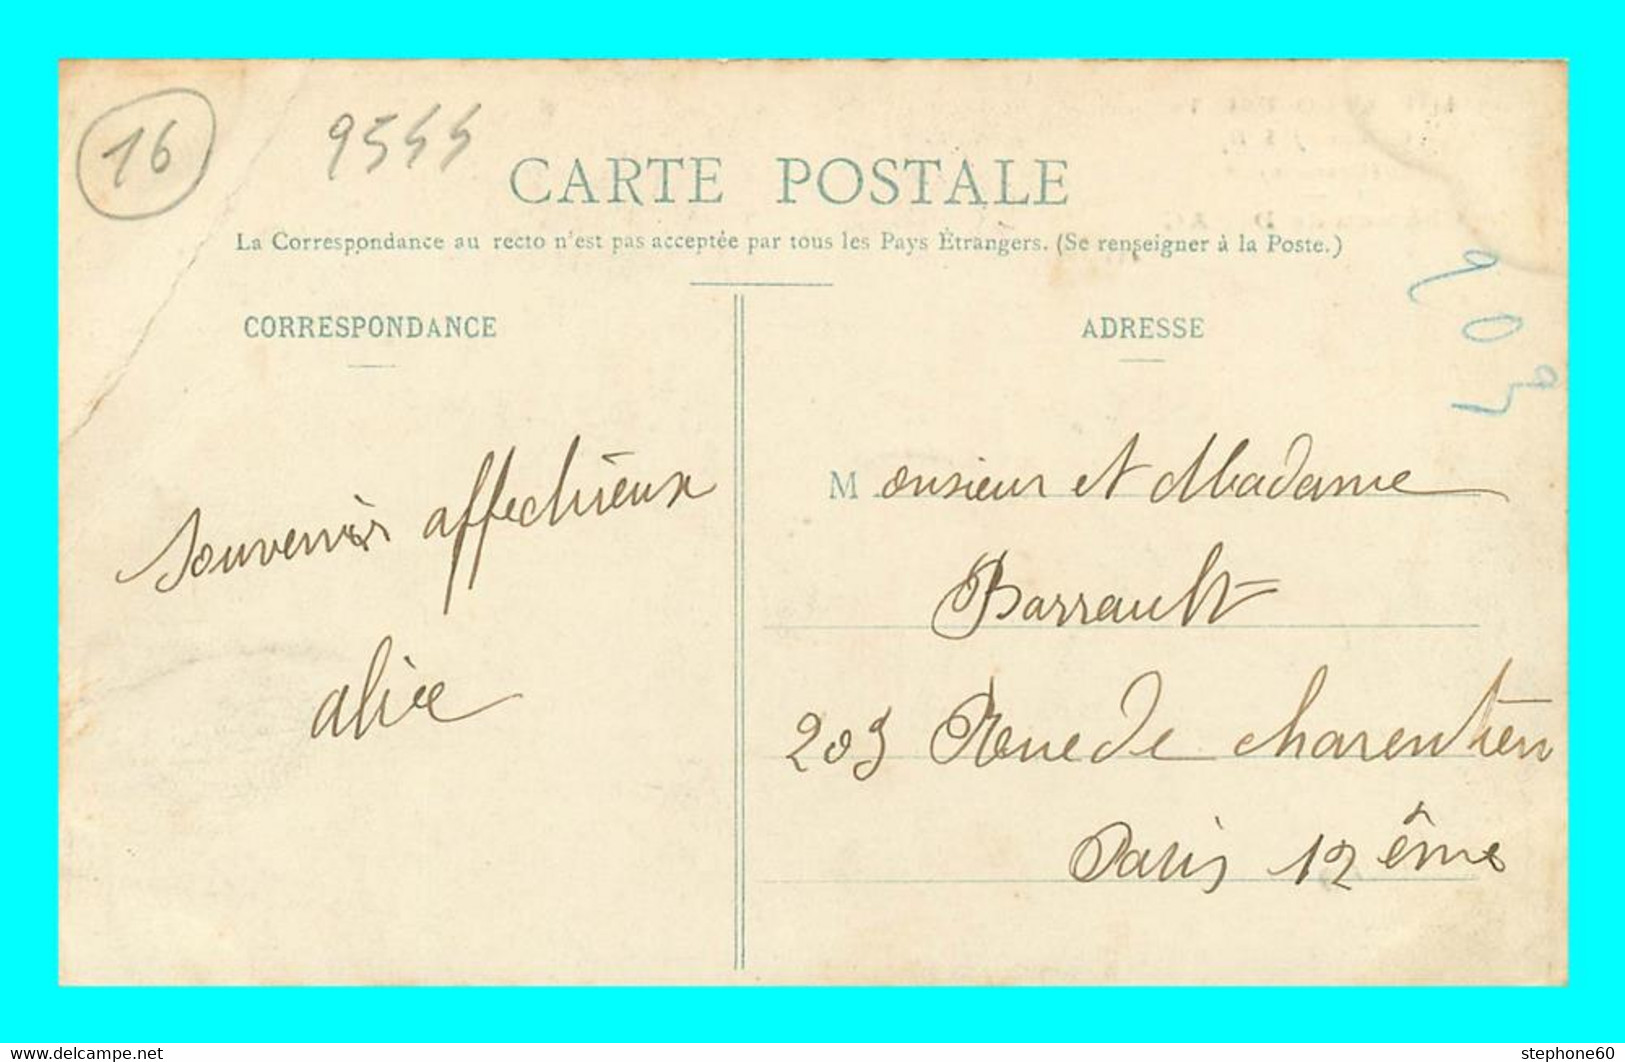 16
9544
CARTE POSTALE
La Correspondance au recto n'est pas acceptée par tous les Pays Étrangers. (Se renseigner à la Poste.)
CORRESPONDANCE
ADRESSE
souvenirs affectueux
alice
Monsieur et Madame
Barrault
209 Rue de charenton
Paris 12 ème
209
stephone60
www.delcampe.net